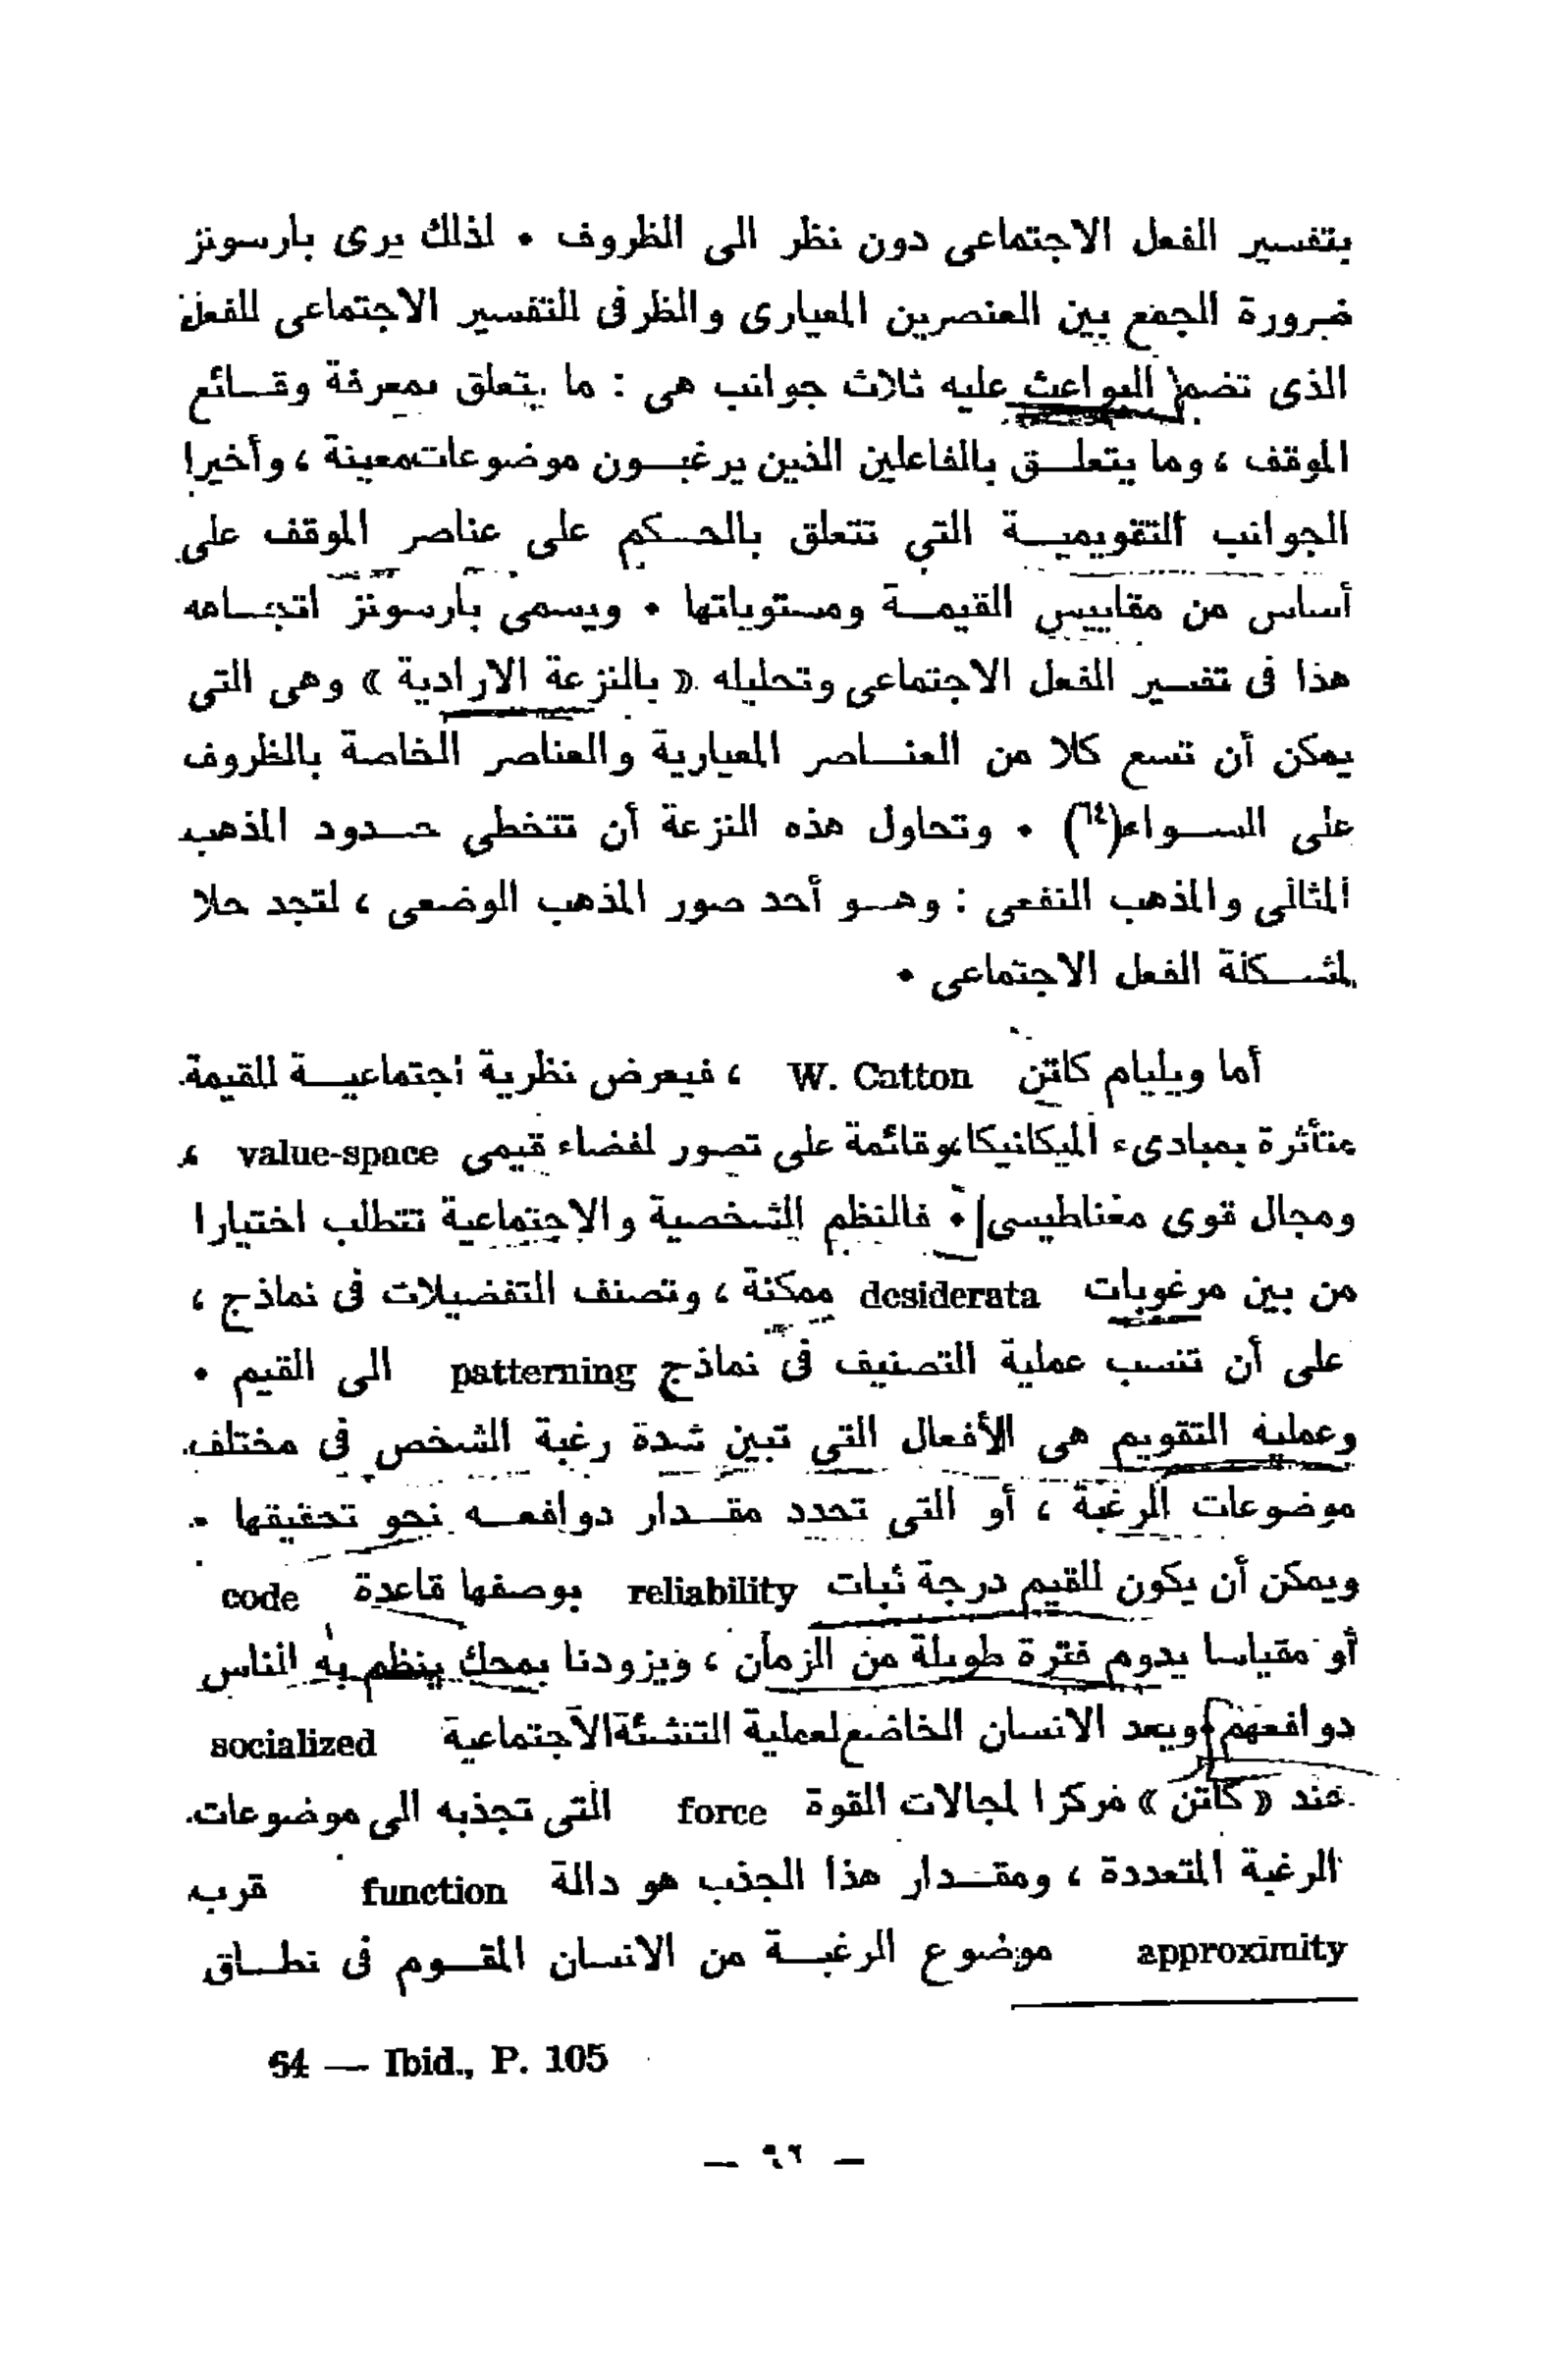 بتفسير الفعل الاجتماعى دون نظر الى الظروف • لذلك يرى بارسونز
ضرورة الجمع بين العنصرين المعيارى والظرفى للتفسير الاجتماعى للفعل
الذى تضم البواعث عليه ثلاث جوانب هى : ما يتعلق بمعرفة وقـائع
الموقف ، وما يتعلـق بالفاعلين الذين يرغبـون موضوعات معينة ، وأخيرا
الجوانب التقويميـة التي تتعلق بالحـكم على عناصر الموقف على
أساس من مقاييس القيمـة ومستوياتها • ويسمى بارسونز اتجـاهه
هذا فى تفسير الفعل الاجتماعى وتحليله « بالنزعة الارادية » وهى التى
يمكن أن تسع كلا من العنـاصر المعيارية والعناصر الخاصة بالظروف
على السـواء(٦٤) • وتحاول هذه النزعة أن تتخطى حـدود المذهب
المثالى والمذهب النفعى : وهـو أحد صور المذهب الوضعى ، لتجد حلا
لمشـكلة الفعل الاجتماعى •
أما ويليام كاتن W. Catton ، فيعرض نظرية اجتماعيـة للقيمة
متأثرة بمبادىء الميكانيكا وقائمة على تصور لفضاء قيمى value-space ،
ومجال قوى مغناطيسى • فالنظم الشخصية والاجتماعية تتطلب اختيارا
من بين مرغوبات desiderata ممكنة ، وتصنف التفضيلات فى نماذج ،
على أن تنسب عملية التصنيف فى نماذج patterning الى القيم •
وعملية التقويم هى الأفعال التى تبين شدة رغبة الشخص فى مختلف
موضوعات الرغبة ، أو التى تحدد مقـدار دوافعـه نحو تحقيقها •
ويمكن أن يكون للقيم درجة ثبات reliability بوصفها قاعدة code
أو مقياسا يدوم فترة طويلة من الزمان ، ويزودنا بمحك ينظم به الناس
دوافعهم ويعد الانسان الخاضع لعملية التنشئة الاجتماعية socialized
عند « كاتن » مركزا لمجالات القوة force التى تجذبه الى موضوعات
الرغبة المتعددة ، ومقـدار هذا الجذب هو دالة function قرب
approximity موضوع الرغبـة من الانسان المقـوم فى نطـاق
64 — Ibid., P. 105
— ٩٦ —